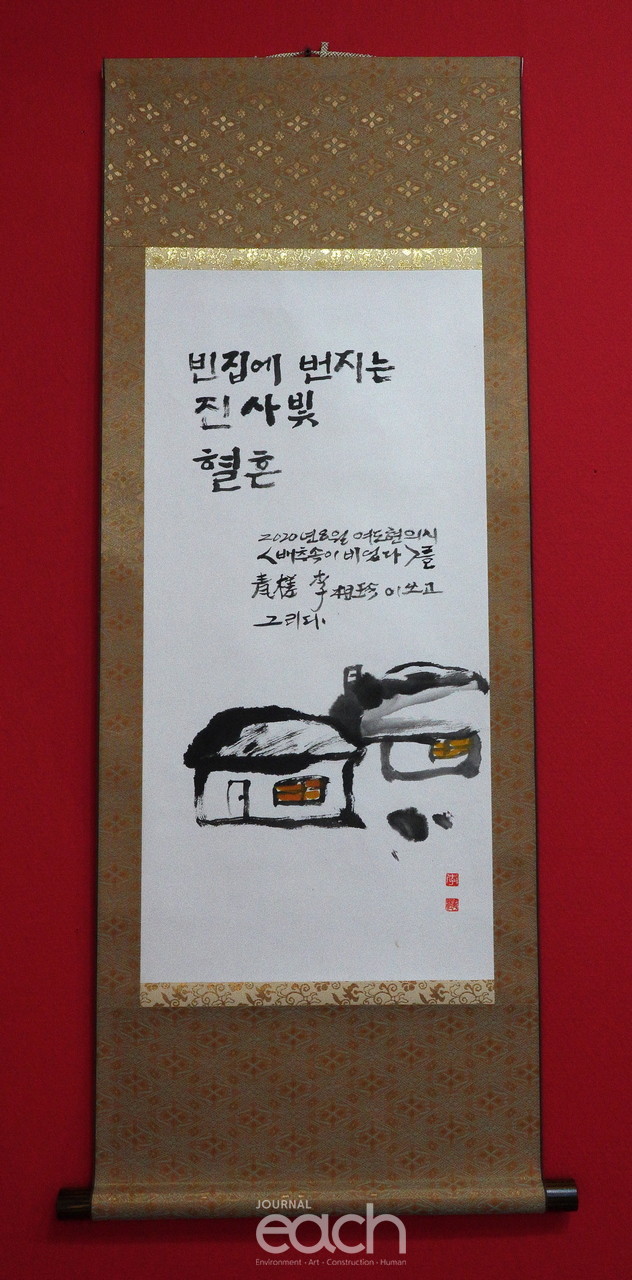 빈집에 번지는
진사빛
혈흔
2020년 8월 여도현의 시
<배추속이 비었다>를
李相珍이 쓰고
그리다.
JOURNAL
each
Environment - Art - Construction - Human